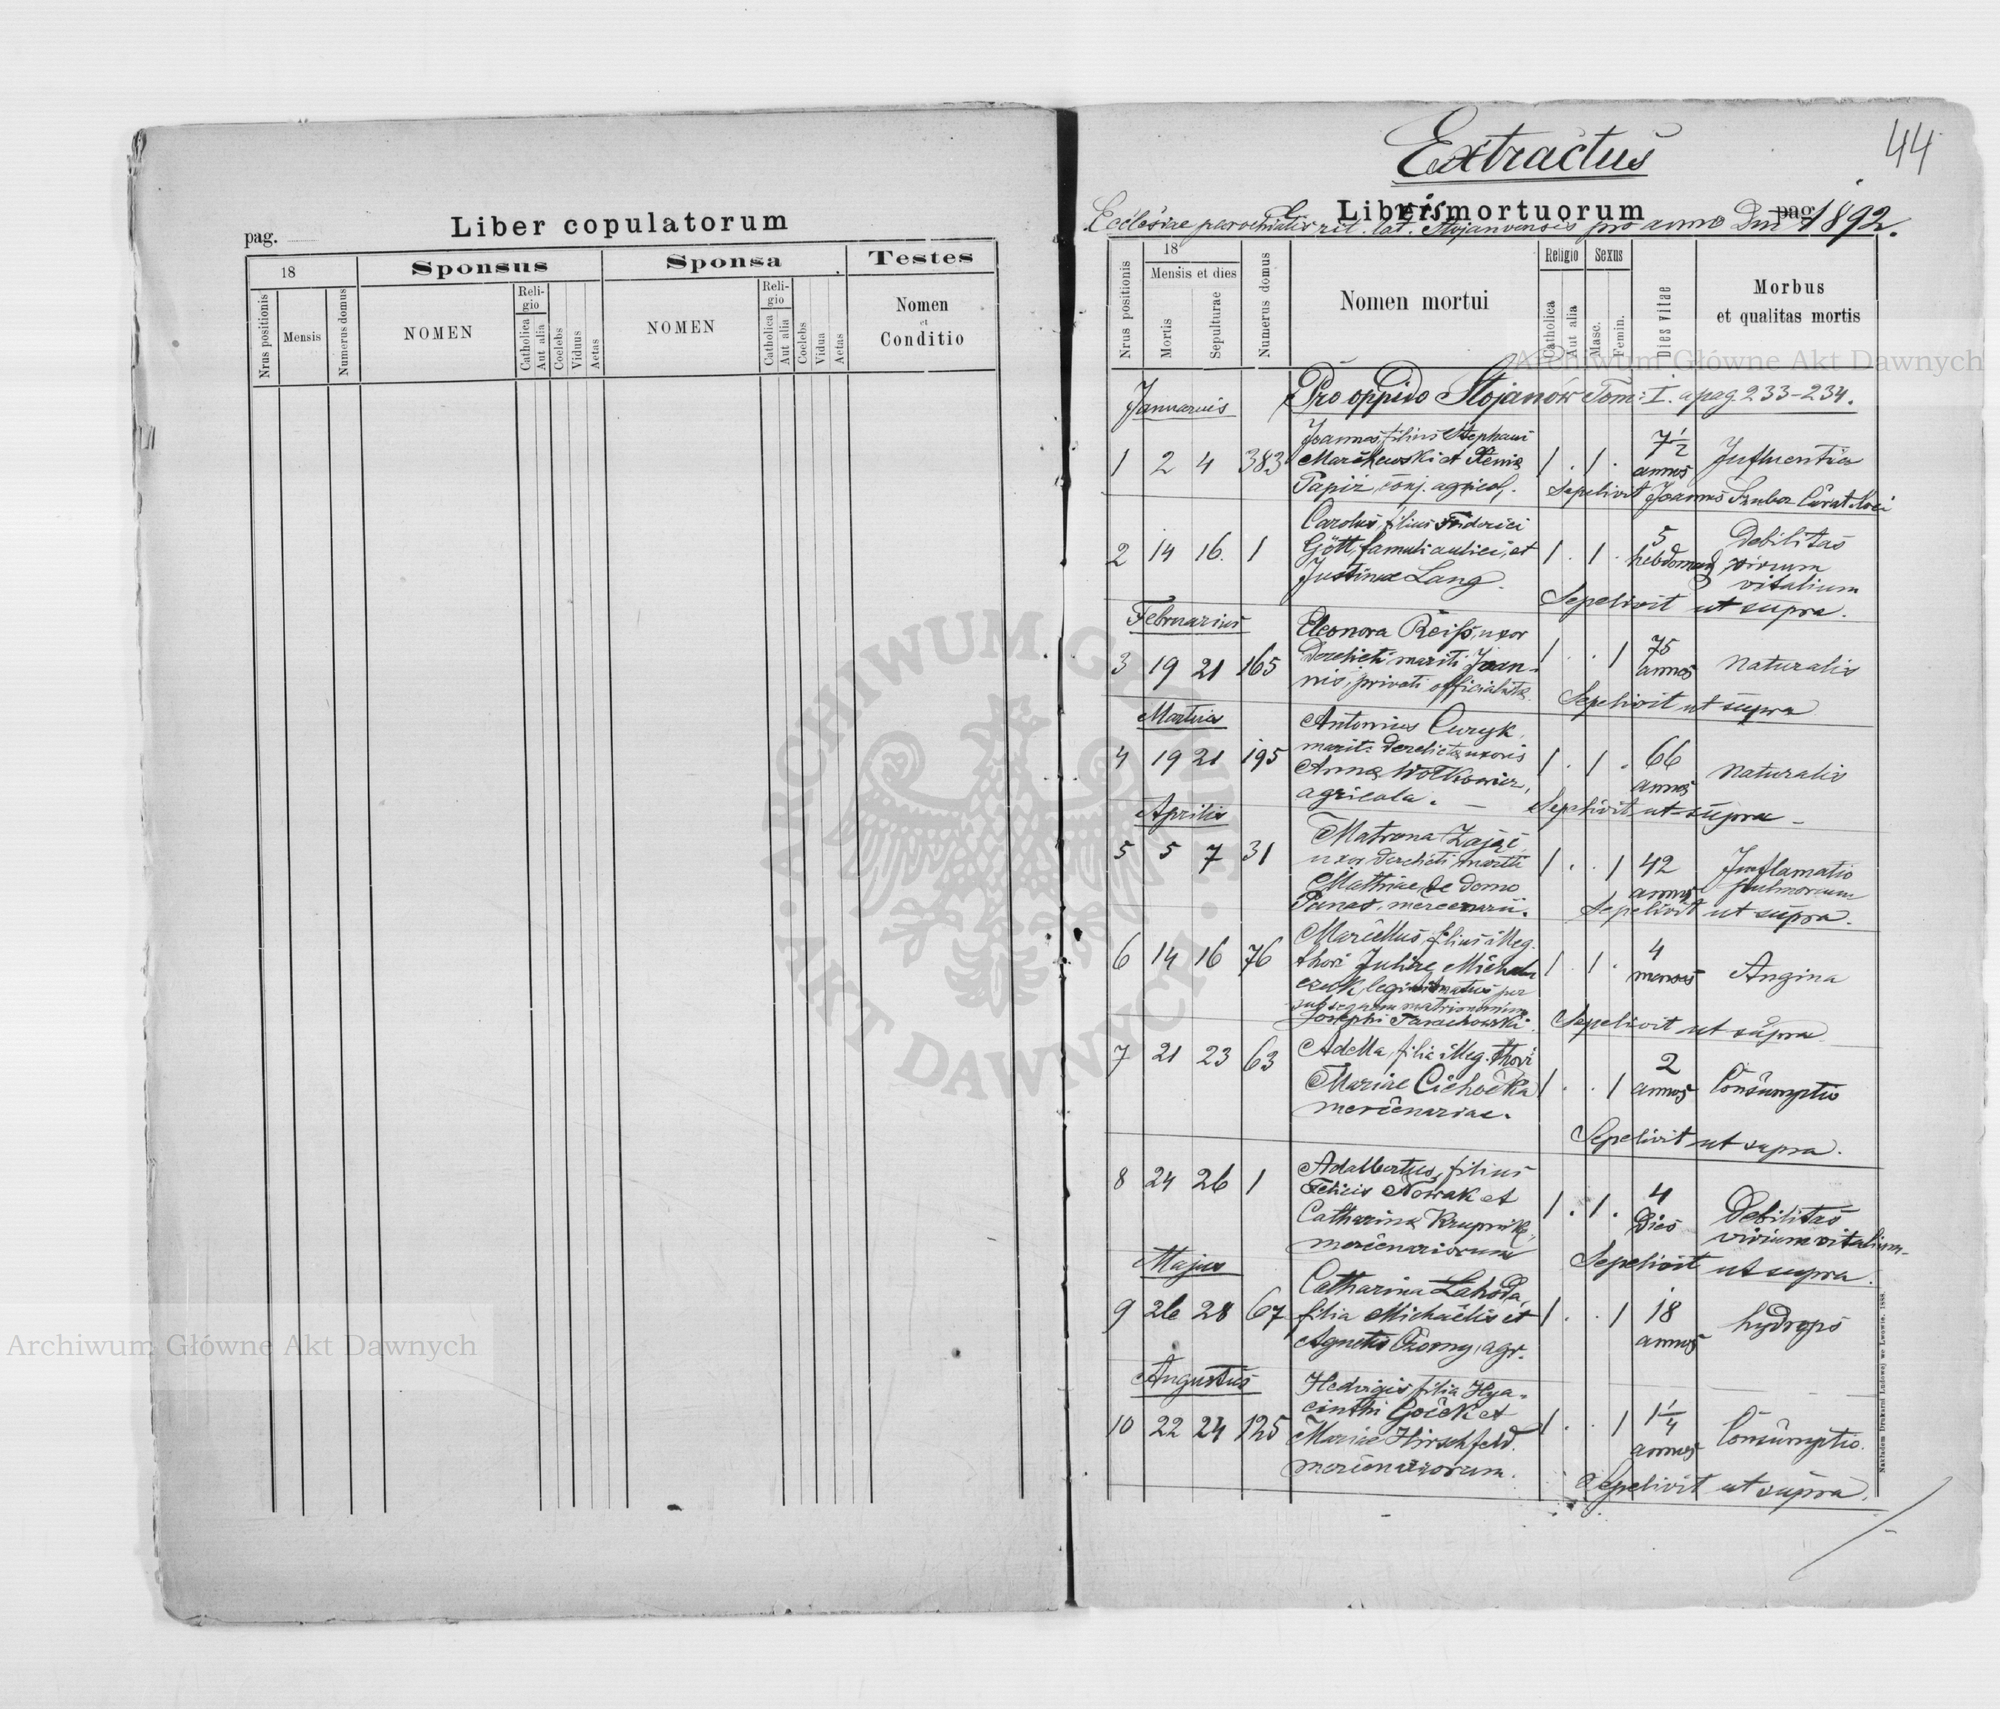 Liber copulatorum
pag.
18
Sponsus
Sponsa
Testes
Nrus positionis
Mensis
Numerus domus
NOMEN
Reli-
gio
Catholica
Aut alia
Coelebs
Viduus
Aetas
NOMEN
Reli-
gio
Catholica
Aut alia
Coelebs
Vidua
Aetas
Nomen
et
Conditio
44
Extractus
Libri mortuorum
pag.
Ecclesiae parochialis rit. lat. Stojanovensis pro anno Dni 1892.
Nrus positionis
18
Mensis et dies
Mortis
Sepulturae
Numerus domus
Nomen mortui
Religio
Catholica
Aut alia
Sexus
Masc.
Femin.
Dies vitae
Morbus
et qualitas mortis
Januarius
Pro oppido Stojanów Tom: I. a pag. 233-234.
Joannes, filius Stephani
1 2 4 383 Marchewski et Xeniae 1 . 1 . 7 1/2 annos Influentia
Papiz, conj. agricol.
Sepelivit Joannes Szuba Curat. loci
Carolus, filius Friderici
2 14 16. 1 Gött, famuli aulici, et 1 . 1 . 5 hebdomad. Debilitas virium vitalium
Justinae Lang.
Sepelivit ut supra.
Februarius
Eleonora Reiss, uxor
3 19 21 165 derelicti mariti Joan- 1 . . 1 75 annos naturalis
nis, privati officialistae
Sepelivit ut supra
Martius
Antonius Curyk,
4 19 21 195 marit. derelictae uxoris 1 . 1 . 66 annos naturalis
Annae Wołkowicz,
agricola. —
Sepelivit ut supra —
Aprilis
Matrona Zając,
5 5 7 31 uxor derelicti mariti 1 . . 1 42 annos Inflamatio pulmonum
Mathiae, de domo
Panas, mercenarii.
Sepelivit ut supra.
Marcellus, filius illeg.
6 14 16 76 thori Juliae Michal 1 . 1 . 4 menses Angina
czuk, legitimatus per
subsequens matrimonium
Josephi Tarachowski.
Sepelivit ut supra
7 21 23 63 Adella, filia illeg. thori 1 . . 1 2 annos Consumptio
Mariae Cichocka
mercenariae.
Sepelivit ut supra.
8 24 26 1 Adalbertus, filius 1 . 1 . 4 dies Debilitas virium vitalium
Felicis Nowak et
Catharinae Krupnik,
mercenariorum
Sepelivit ut supra.
Majus
Catharina Lahoda,
9 26 28 67 filia Michaëlis et 1 . . 1 18 annos hydrops
Agnetis Czorny, agr.
Augustus
Hedvigis, filia Hya-
cinthi Gocek et
10 22 24 125 Mariae Hirschfeld. 1 . . 1 1 1/4 annos Consumptio.
mercenariorum.
Sepelivit ut supra.
Nakładem Drukarni Ludowej we Lwowie. 1888.
Archiwum Główne Akt Dawnych
Archiwum Główne Akt Dawnych
ARCHIWUM GŁÓWNE
AKT DAWNYCH